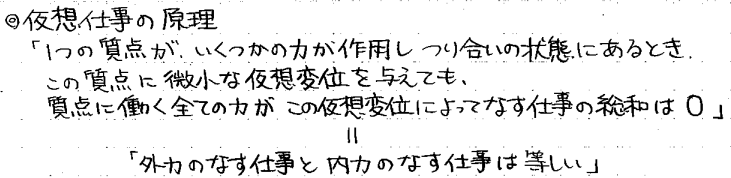 ◎仮想仕事の原理
「1つの質点が、いくつかの力が作用し つり合いの状態にあるとき、
この質点に微小な仮想変位を与えても、
質点に働く全ての力が この仮想変位によってなす仕事の総和は 0」
=
「外力のなす仕事と 内力のなす仕事は等しい」